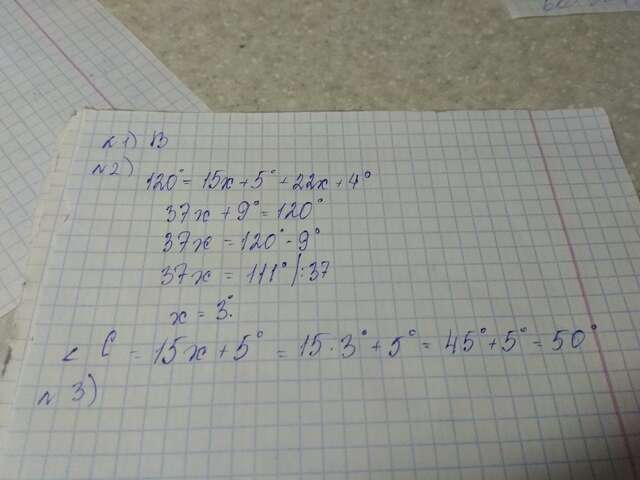 №1) В
№2)
120° = 15x + 5° + 22x + 4°
37x + 9° = 120°
37x = 120° - 9°
37x = 111° |:37
x = 3°.
< C = 15x + 5° = 15·3° + 5° = 45° + 5° = 50°
№3)